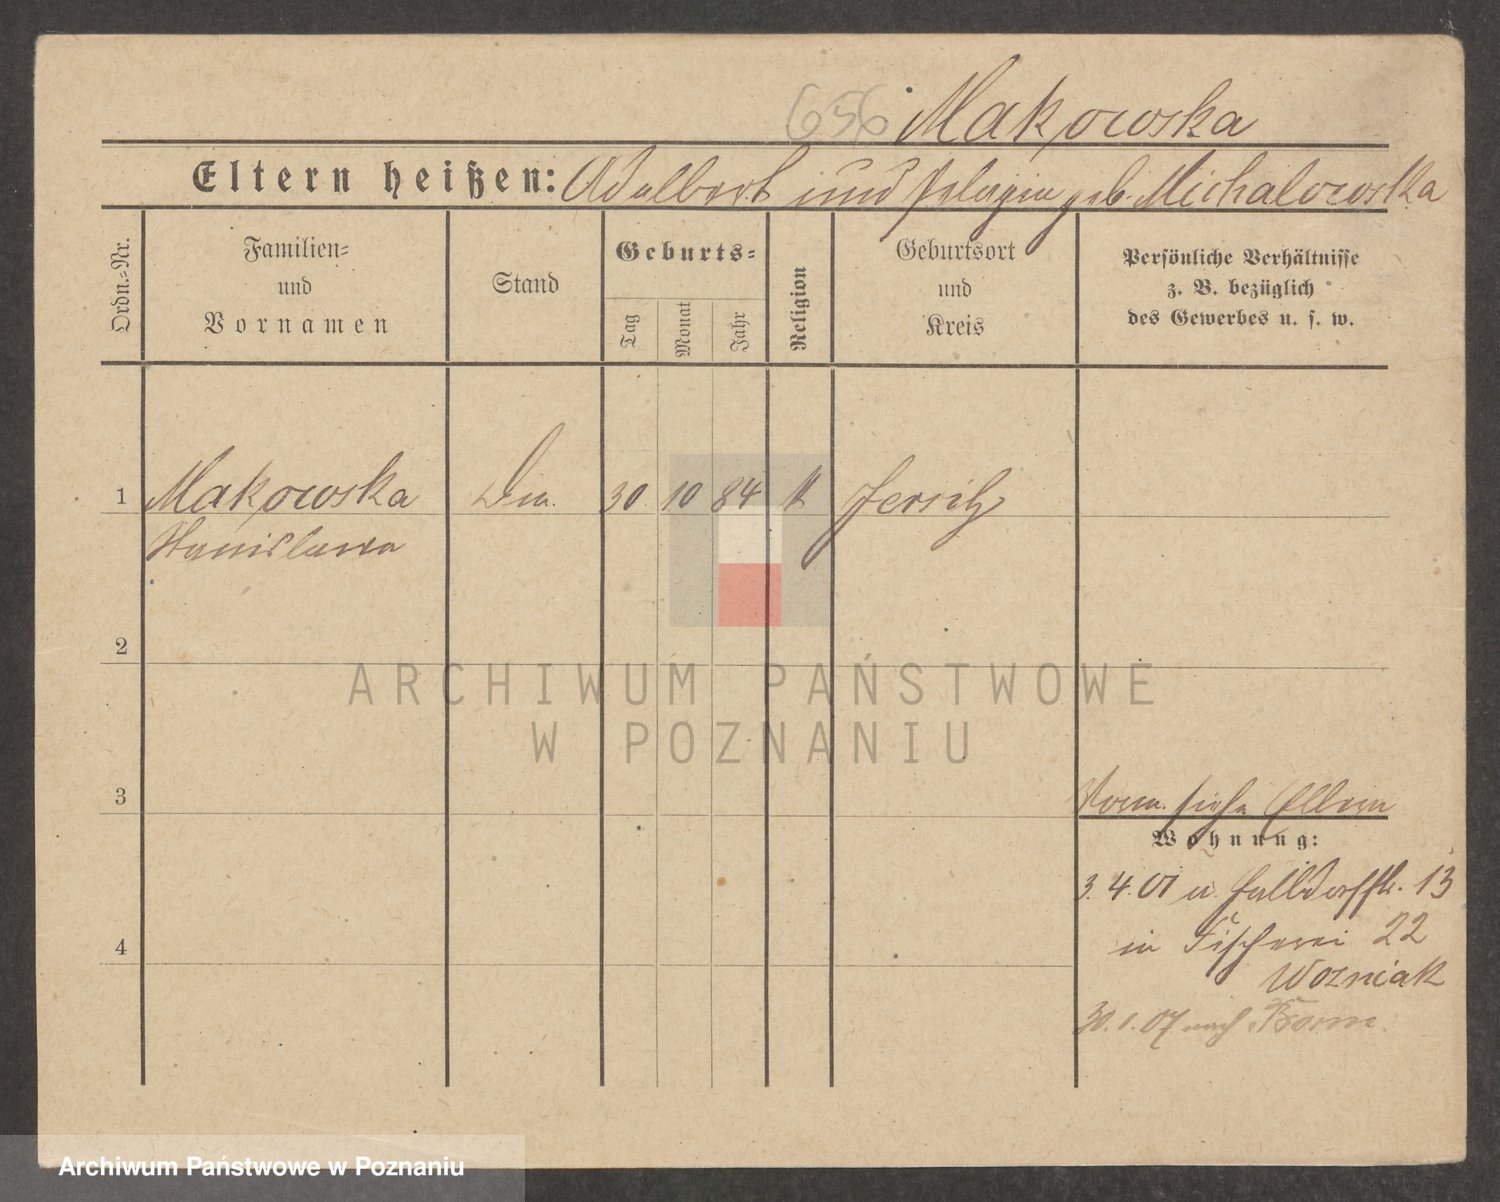 656 Makowska
Eltern heißen: Adalbert und Pelagia geb. Michalowska
Ordn.-Nr.
Familien-
und
Vornamen
Stand
Geburts-
Tag
Monat
Jahr
Religion
Geburtsort
und
Kreis
Persönliche Verhältnisse
z. B. bezüglich
des Gewerbes u. s. w.
1 Makowska 30 10 84 k Jersitz
Stanislawa
2
ARCHIWUM PAŃSTWOWE
W POZNANIU
3
siehe Eltern
Wohnung:
3.4.01 13
in Fischerei 22
Wozniak
4
30.1.07 nach
Archiwum Państwowe w Poznaniu